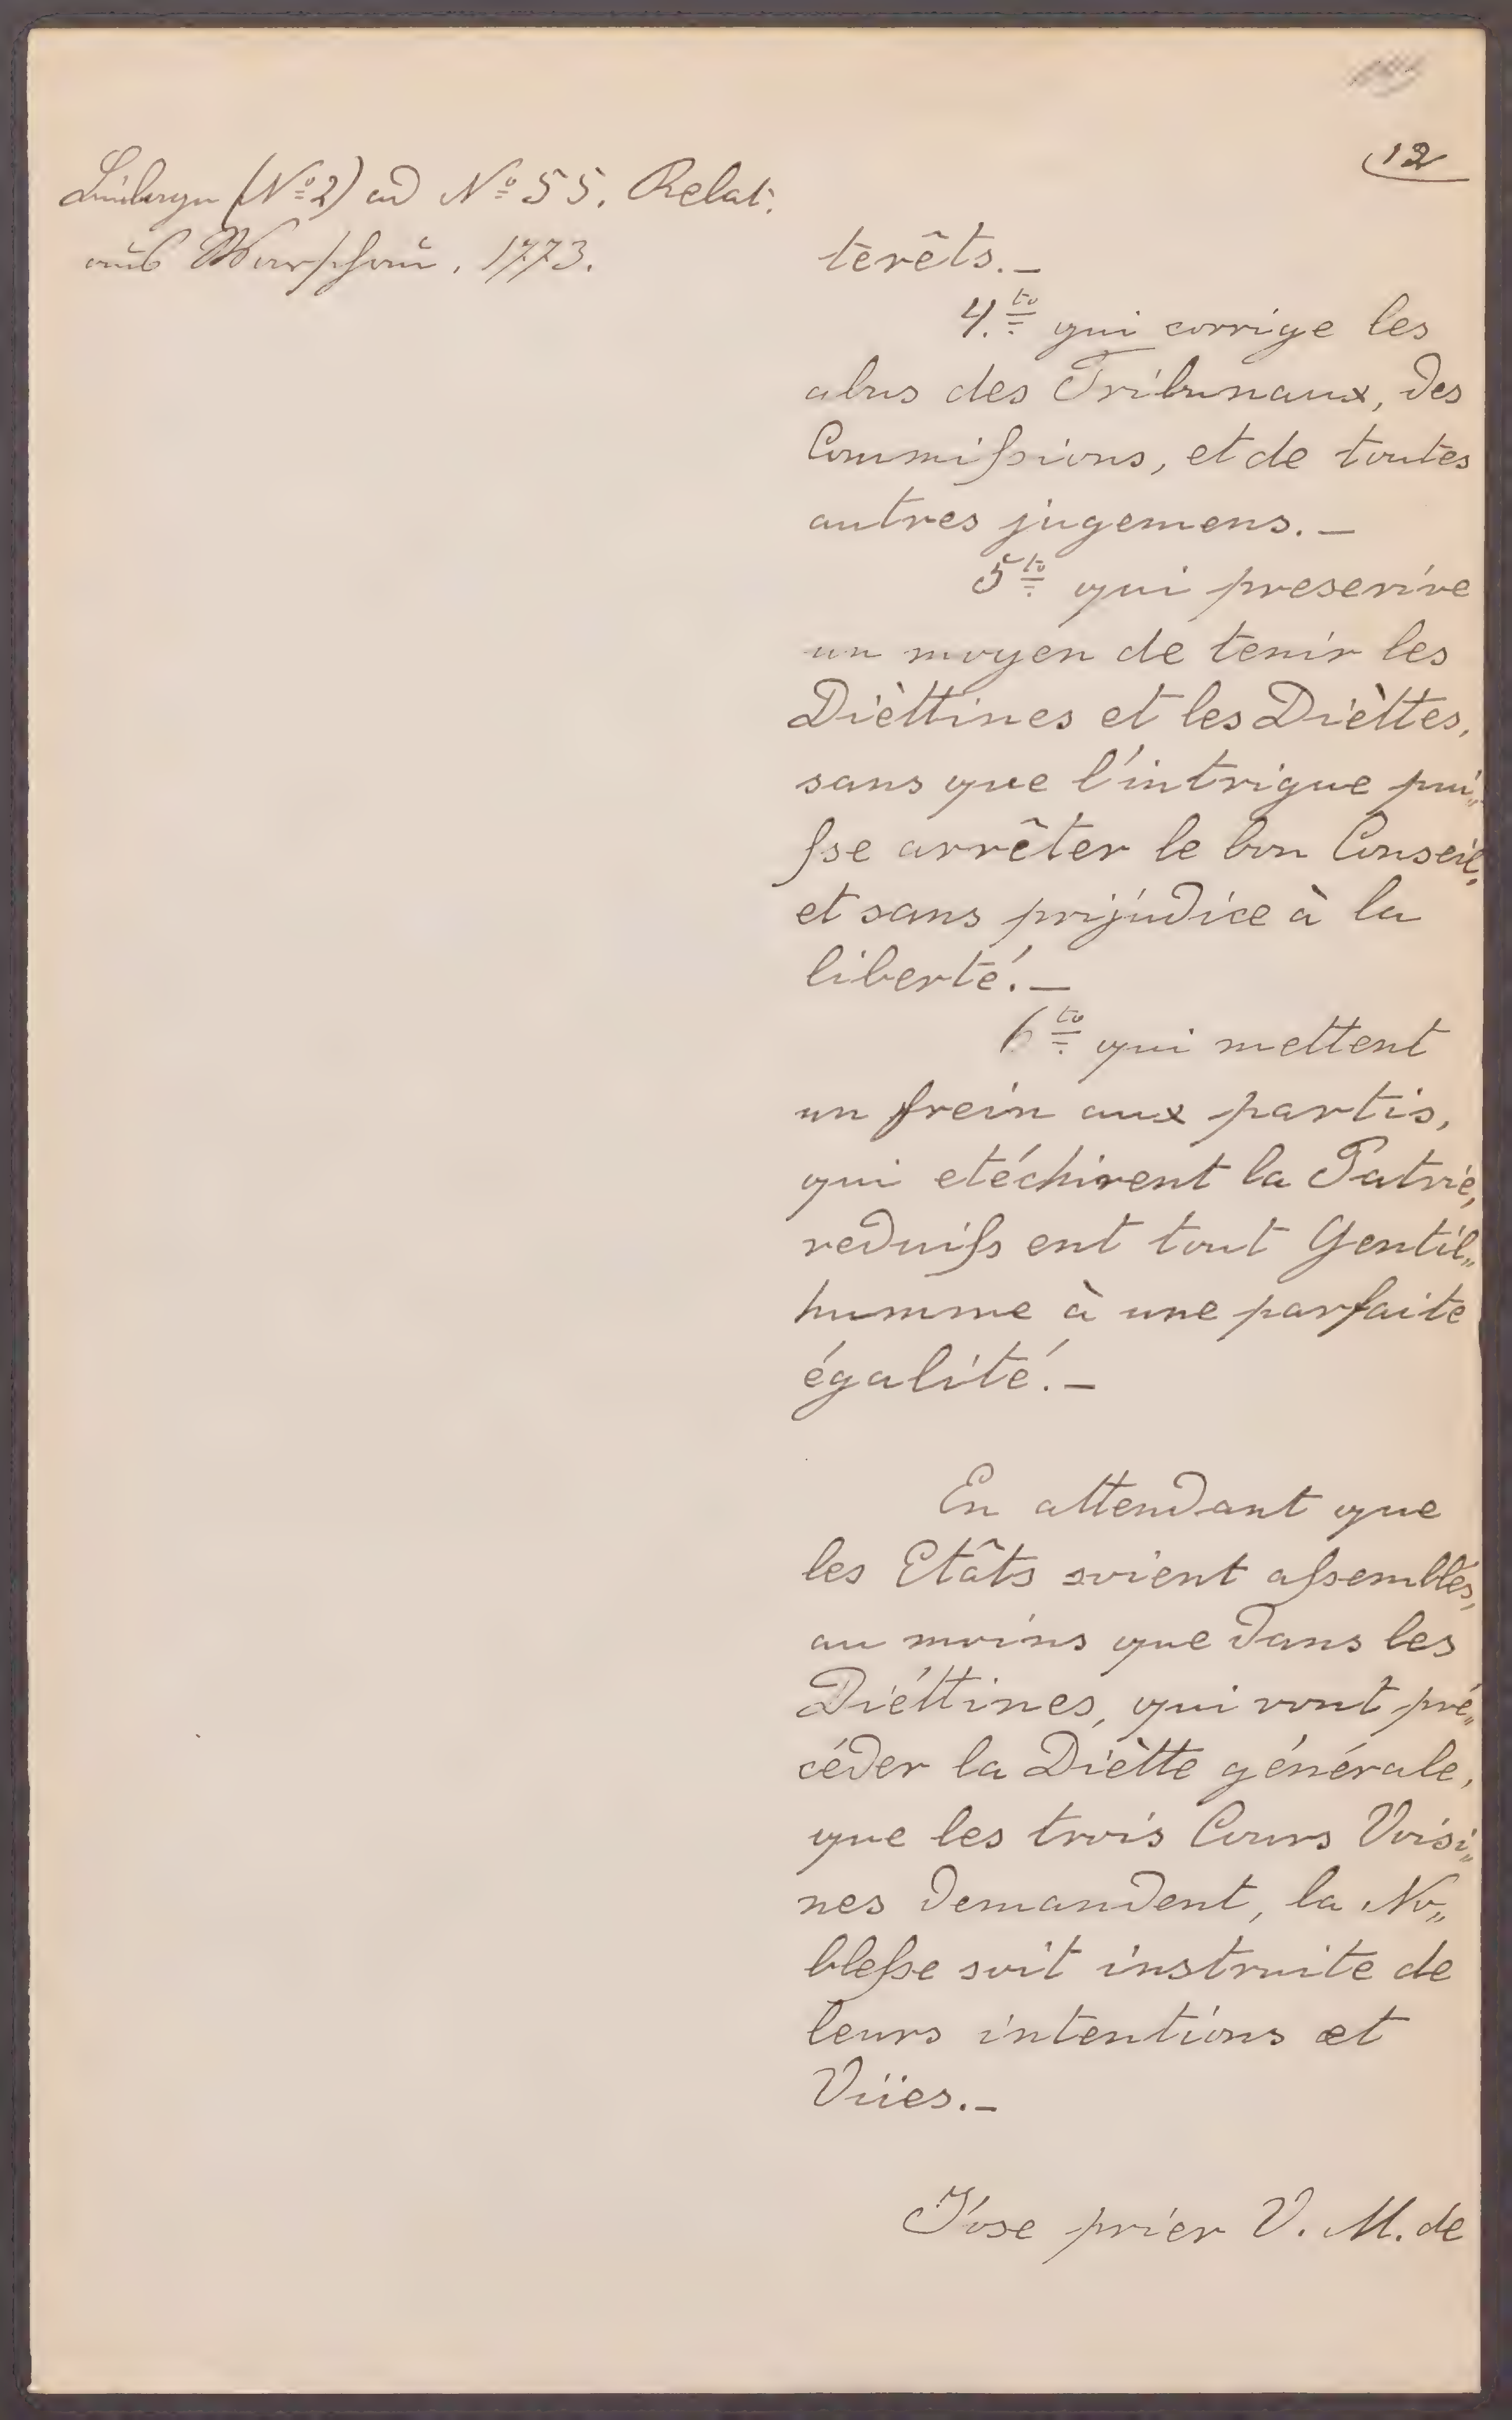 12
Beilagen (Nº 2) ad Nº 55. Relat:
aus Warschau, 1773.
terêts.—
4.to qui corrige les
abus des Tribunaux, des
Commissions, et de toutes
autres jugemens.—
5to qui prescrive
un moyen de tenir les
Dièttines et les Dièttes,
sans que l'intrigue pui„
sse arrêter le bon Conseil,
et sans prijudice à la
liberté.—
6to qui mettent
un frein aux partis,
qui etéchirent la Patrie,
reduiss ent tout Gentil„
homme à une parfaite
égalité.—
En attendant que
les Etâts soient assemblés,
au moins que dans les
Diéttines, qui vont pré„
céder la Diètte générale,
que les trois Cours Voisi„
nes demandent, la No„
blesse soit instruite de
leurs intentions et
Vües.—
J'ose prier V. M. de